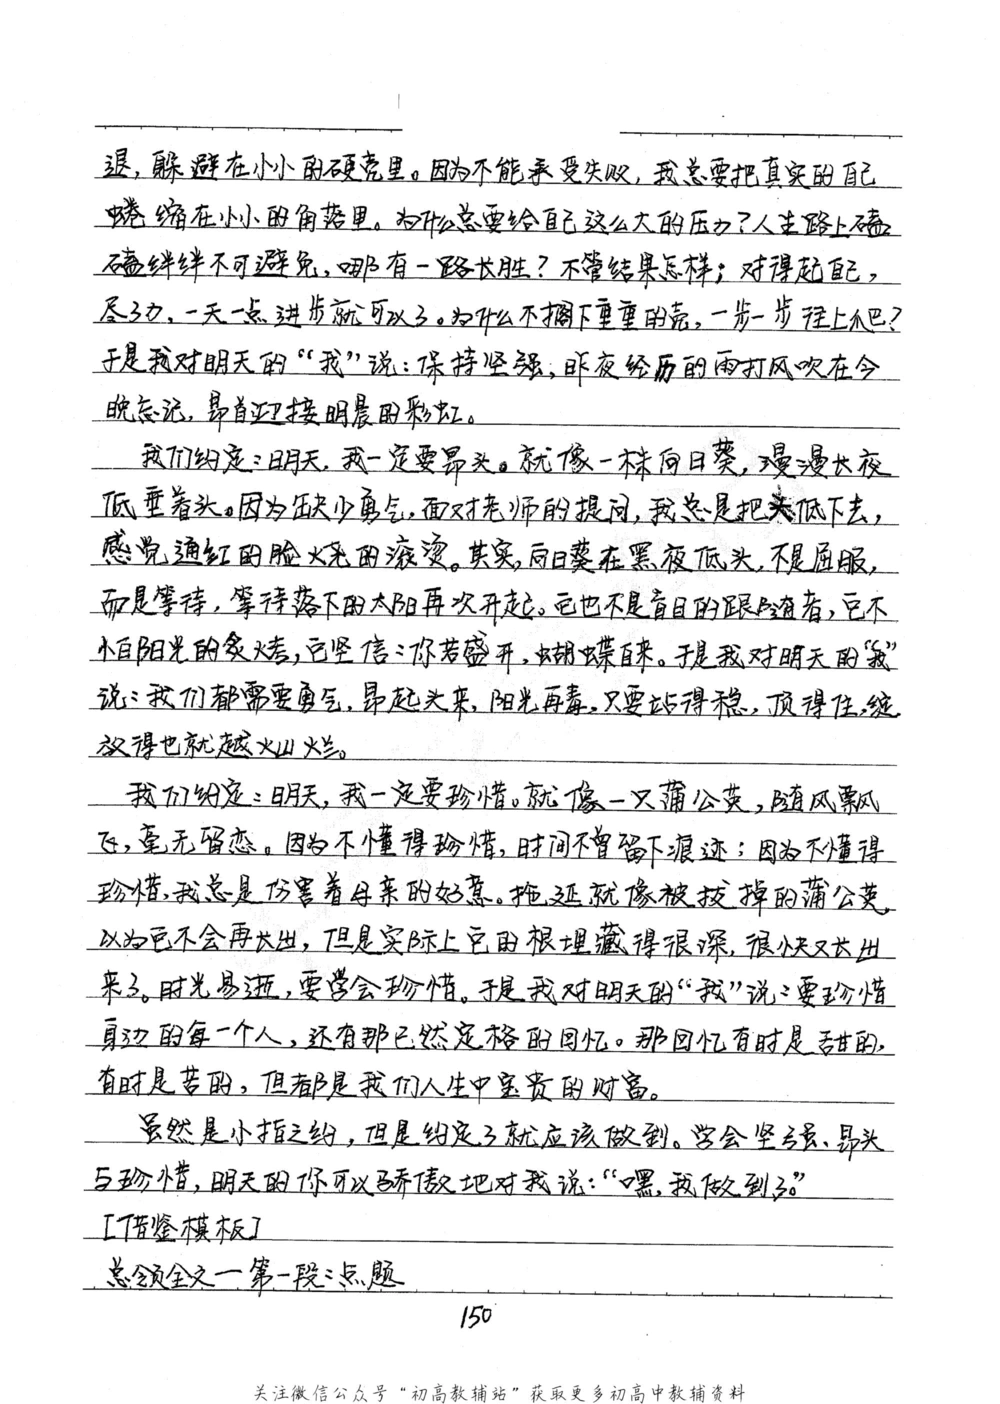 退，躲避在小小的硬壳里。因为不能承受失败，我总要把真实的自己
蜷缩在小小的角落里。为什么总要给自己这么大的压力？人生路上磕
磕绊绊不可避免，哪有一路长胜？不管结果怎样；对得起自己，
尽了力，一天一点进步就可以了。为什么不搁下重重的壳，一步一步往上爬？
于是我对明天的“我”说：保持坚强；昨夜经历的雨打风吹在今
晚忘记，昂首迎接明晨的彩虹。
我们约定：明天，我一定要昂头。就像一株向日葵，漫漫长夜
低垂着头。因为缺少勇气，面对老师的提问，我总是把头低下去，
感觉通红的脸火烧的滚烫。其实，向日葵在黑夜低头，不是屈服，
而是等待，等待落下的太阳再次升起。它也不是盲目的跟随者，它不
怕阳光的炙烤，它坚信：你若盛开，蝴蝶自来。于是我对明天的“我”
说：我们都需要勇气，昂起头来，阳光再毒，只要站得稳，顶得住，绽
放得也就越火山烂。
我们约定：明天，我一定要珍惜。就像一只蒲公英，随风飘
飞，毫无留恋。因为不懂得珍惜，时间不曾留下痕迹；因为不懂得
珍惜，我总是伤害着母亲的好意。拖延就像被拔掉的蒲公英，
以为它不会再长出，但是实际上它的根埋藏得很深，很快又长出
来了。时光易逝，要学会珍惜。于是我对明天的“我”说：要珍惜
身边的每一个人，还有那已然定格的回忆。那回忆有时是甜的，
有时是苦的，但都是我们人生中宝贵的财富。
虽然是小指之约，但是约定了就应该做到。学会坚强、昂头
与珍惜，明天的你可以骄傲地对我说：“嘿，我做到了。”
[借鉴模板]
总领全文一第一段：点题
150
关注微信公众号“初高教辅站”获取更多初高中教辅资料